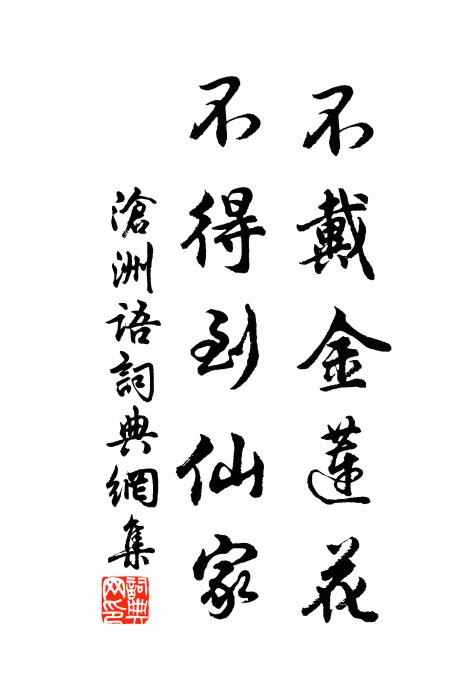 不戴金蓮花
不得到仙家
滄洲語詞典網集
詞典
网印